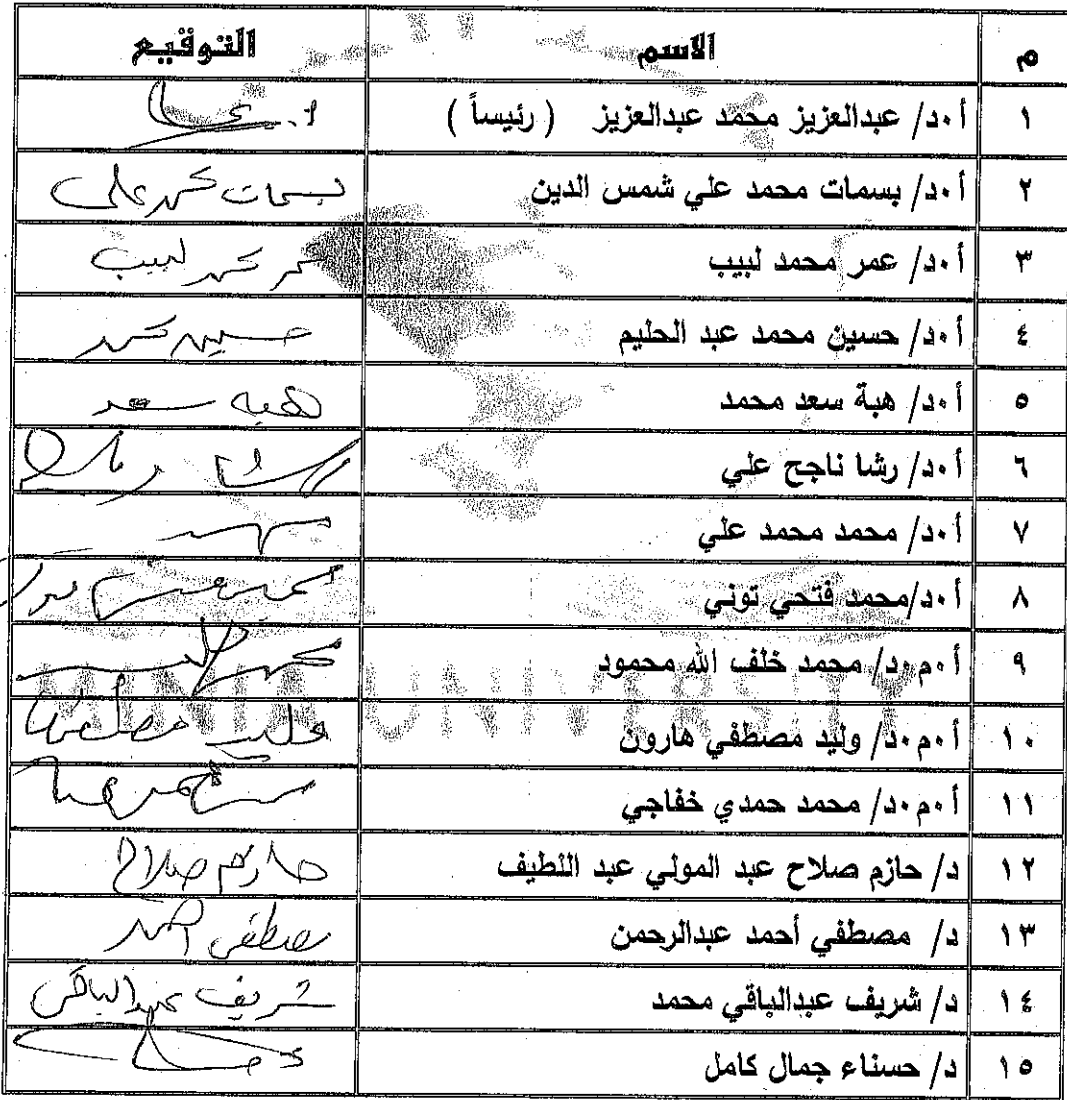 م الاسم التوقيع
١ أ.د/ عبدالعزيز محمد عبدالعزيز ( رئيساً )
٢ أ.د/ بسمات محمد علي شمس الدين بسمات محمد علي
٣ أ.د/ عمر محمد لبيب عمر محمد لبيب
٤ أ.د/ حسين محمد عبد الحليم حسين محمد
٥ أ.د/ هبة سعد محمد هبه سعد
٦ أ.د/ رشا ناجح علي رشا
٧ أ.د/ محمد محمد علي
٨ أ.د/محمد فتحي توني
٩ أ.م.د/ محمد خلف الله محمود
MINIA UNIVERSITY
١٠ أ.م.د/ وليد مصطفي هارون وليد مصطفى
١١ أ.م.د/ محمد حمدي خفاجي
١٢ د/ حازم صلاح عبد المولي عبد اللطيف حازم صلاح
١٣ د/ مصطفي أحمد عبدالرحمن مصطفى احمد
١٤ د/ شريف عبدالباقي محمد شريف عبدالباقى
١٥ د/ حسناء جمال كامل